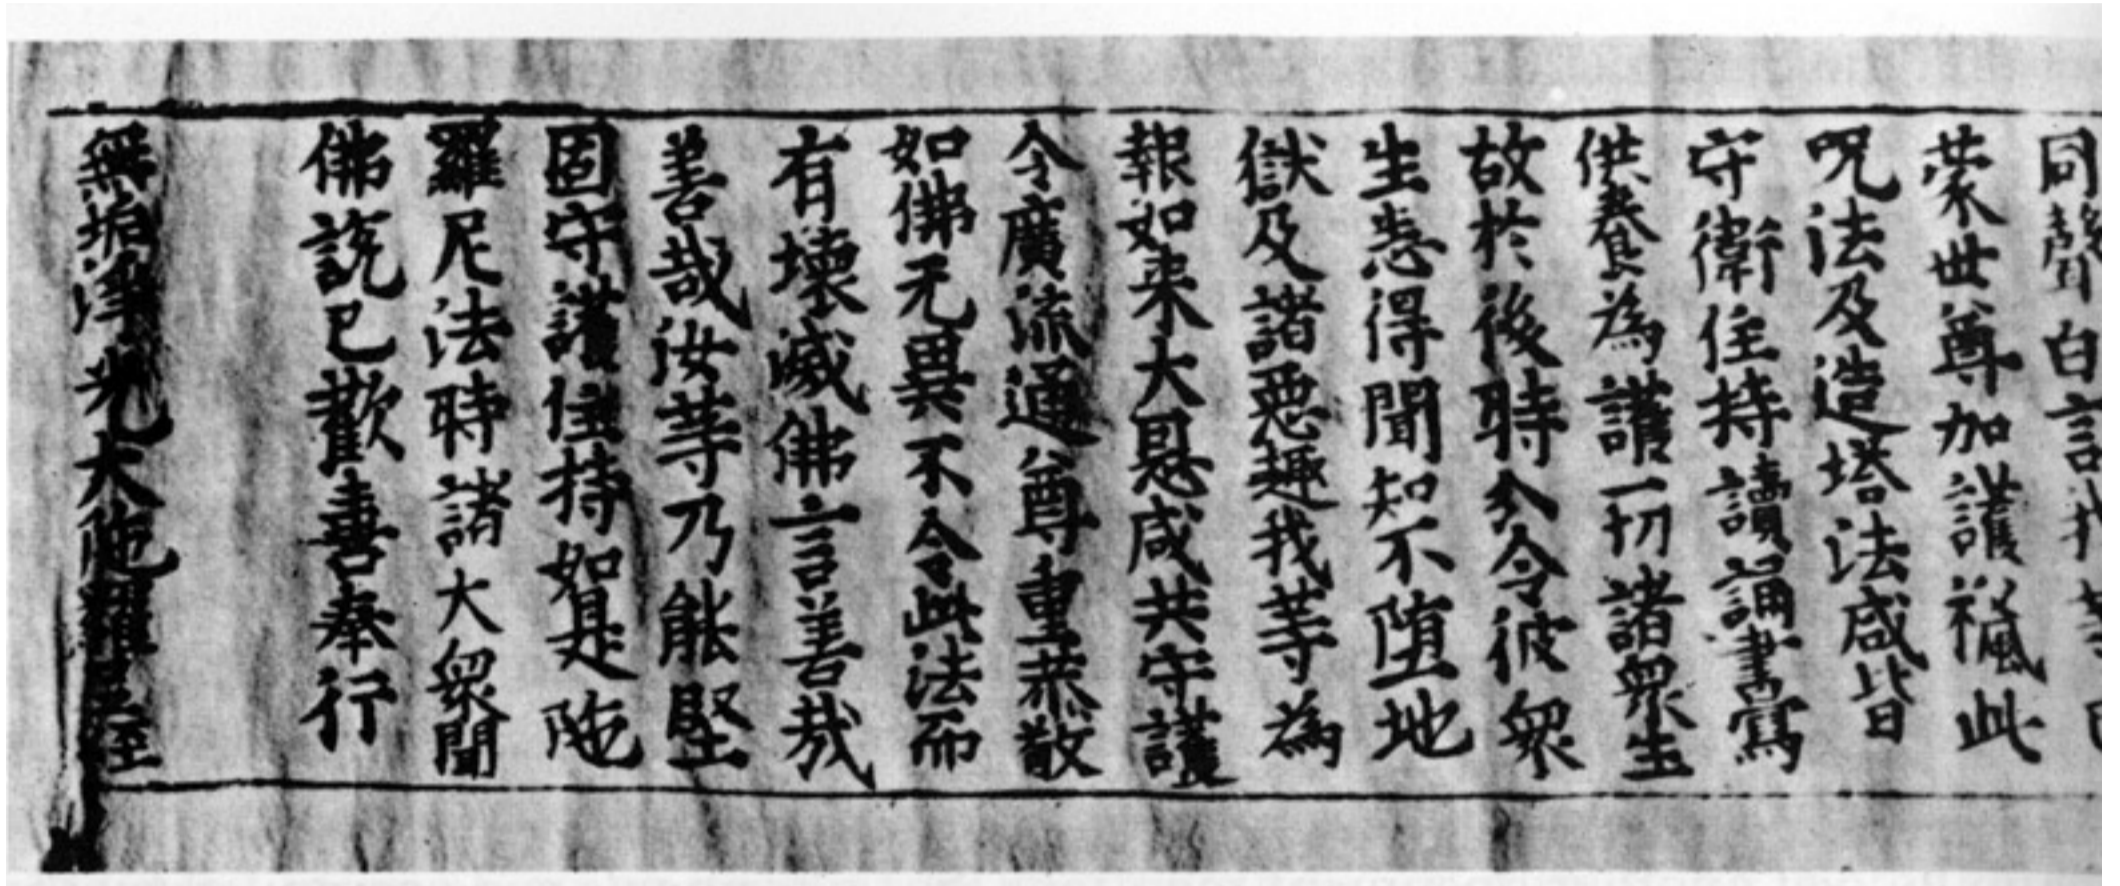 同聲白言我等已
蒙世尊加護此
呪法及造塔法咸皆
守衛住持讀誦書寫
供養為護一切諸衆生
故於後時分令彼衆
生悉得聞知不堕地
獄及諸惡趣我等為
報如来大恩咸共守護
令廣流通尊重恭敬
如佛无異不令此法而
有壞滅佛言善哉
善哉汝等乃能堅
固守護住持如是陁
羅尼法時諸大衆聞
佛說已歡喜奉行
無垢淨光大陁羅尼經